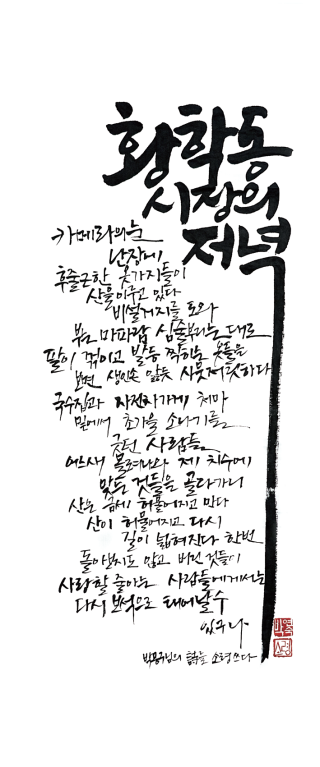 황학동
시장의
저녁
카메라의 눈
난장에
후줄근한 옷가지들이
산을 이루고 있다
비설거지를 도와
부는 마파람 심술부리는 대로
팔이 꺾이고 발등 찍히는 옷들을
보면 생인손 앓듯 사뭇 저릿하다
국수집과 자전차가게 처마
밑에서 초가을 소나기를
긋던 사람들
어느새 몰려나와 제 치수에
맞는 것들을 골라가니
산은 금세 허물어지고 만다
산이 허물어지고 다시
길이 넓혀진다 한번
돌아보지도 않고 버린 것들이
사랑할 줄 아는 사람들에게서는
다시 보석으로 태어날 수
있구나
님의 쓰다